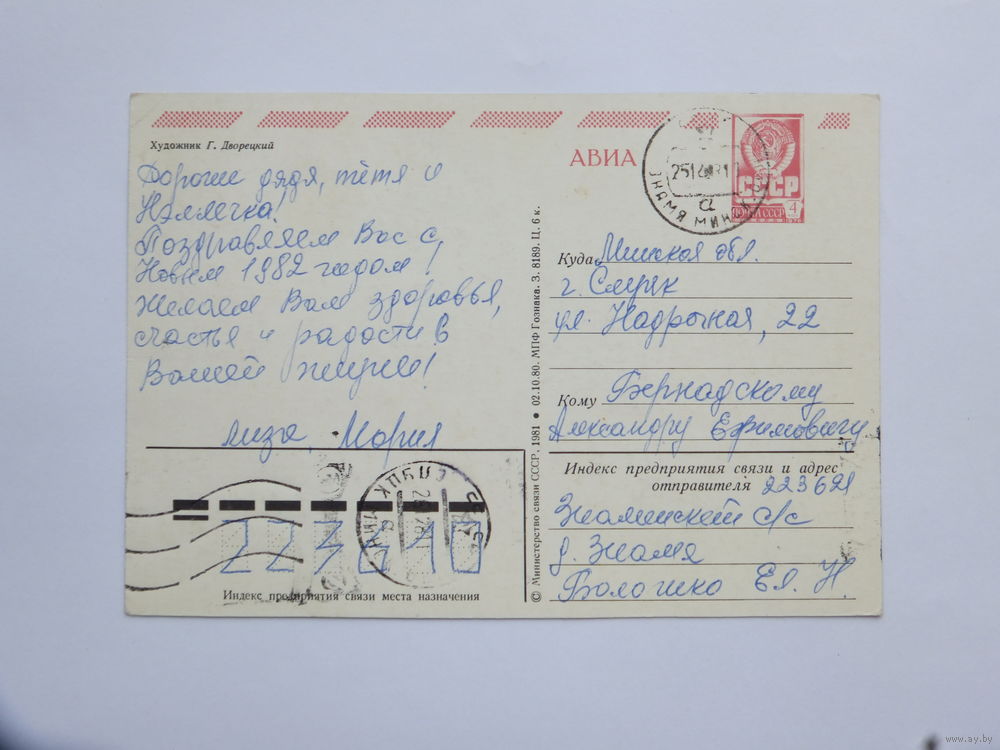 Художник Г. Дворецкий
Дорогие дядя, тётя и
Нэллечка!
Поздравляем Вас с
Новым 1982 годом!
Желаем Вам здоровья,
счастья и радости в
Вашей жизни!
Лиза, Мария
223610
Индекс предприятия связи места назначения
© Министерство связи СССР, 1981 ● 02.10.80. МПФ Гознака. З. 8189. Ц. 6 к.
АВИА
СССР
ПОЧТА СССР
4
1976
ЗНАМЯ МИНСК
а
СЛУЦК МИН
Куда Минская обл.
г. Слуцк
ул. Надречная, 22
Кому Бернадскому
Александру Ефимовичу
Индекс предприятия связи и адрес
отправителя 223621
Знаминский с/с
д. Знамя
Болошко Ел. Н.
www.ay.by